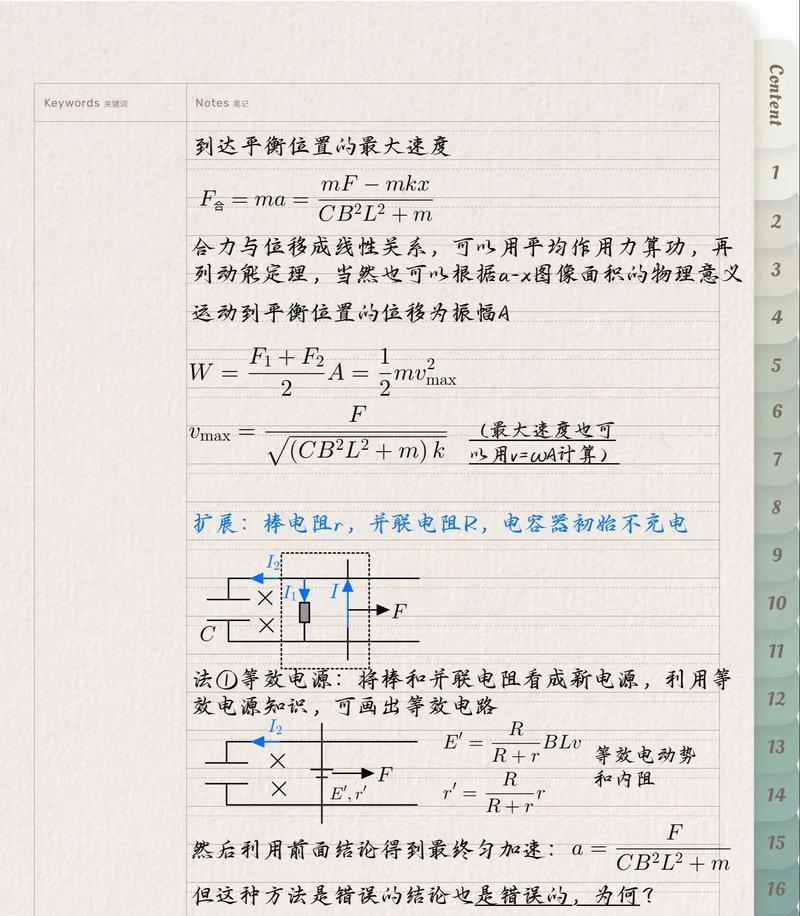 Content
Keywords 关键词
Notes 笔记
到达平衡位置的最大速度
F合 = ma = (mF − mkx)/(CB²L² + m)
合力与位移成线性关系，可以用平均作用力算功，再
列动能定理，当然也可以根据a-x图像面积的物理意义
运动到平衡位置的位移为振幅A
W = (F₁ + F₂)/2 A = 1/2 mv²max
vmax = F/√((CB²L² + m) k)
（最大速度也可
以用v=ωA计算）
扩展：棒电阻r，并联电阻R，电容器初始不充电
I₂
I₁
I
F
C
法①等效电源：将棒和并联电阻看成新电源，利用等
效电源知识，可画出等效电路
I₂
F
E′, r′
E′ = R/(R + r) BLv
r′ = R/(R + r) r
等效电动势
和内阻
然后利用前面结论得到最终匀加速：a = F/(CB²L² + m)
但这种方法是错误的结论也是错误的，为何？
1
2
3
4
5
6
7
8
9
10
11
12
13
14
15
16